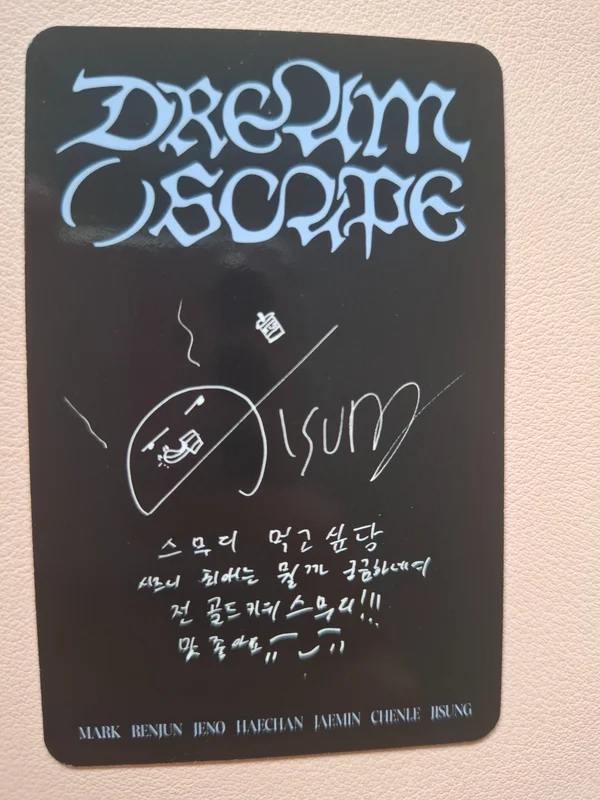 DREAM
()SCAPE
Jisung
스무디 먹고싶당
시즈니 최애는 뭘까 궁금하네여
전 골드키위 스무디!!!
맛 좋아요
MARK RENJUN JENO HAECHAN JAEMIN CHENLE JISUNG